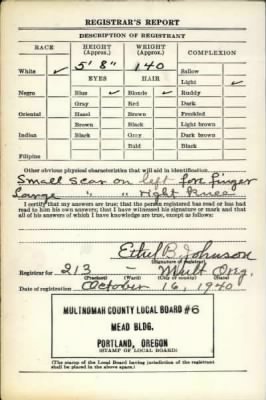 REGISTRAR'S REPORT
DESCRIPTION OF REGISTRANT
RACE HEIGHT (Approx.) WEIGHT (Approx.) COMPLEXION
5' 8" 140
White ✓ Sallow
EYES HAIR Light ✓
Negro Blue ✓ Blonde ✓ Ruddy
Gray Red Dark
Oriental Hazel Brown Freckled
Brown Black Light brown
Indian Black Gray Dark brown
Bald Black
Filipino
Other obvious physical characteristics that will aid in identification
Small scar on left fore finger
Large " " right Knee
I certify that my answers are true; that the person registered has read or has had
read to him his own answers; that I have witnessed his signature or mark and that
all of his answers of which I have knowledge are true, except as follows:
Ethel B. Johnson
(Signature of registrar)
Registrar for 213 - Mult Org.
(Precinct) (Ward) (City or county) (State)
Date of registration October 16, 1940
MULTNOMAH COUNTY LOCAL BOARD #6
MEAD BLDG.
PORTLAND, OREGON
(STAMP OF LOCAL BOARD)
(The stamp of the Local Board having jurisdiction of the registrant
shall be placed in the above space.)